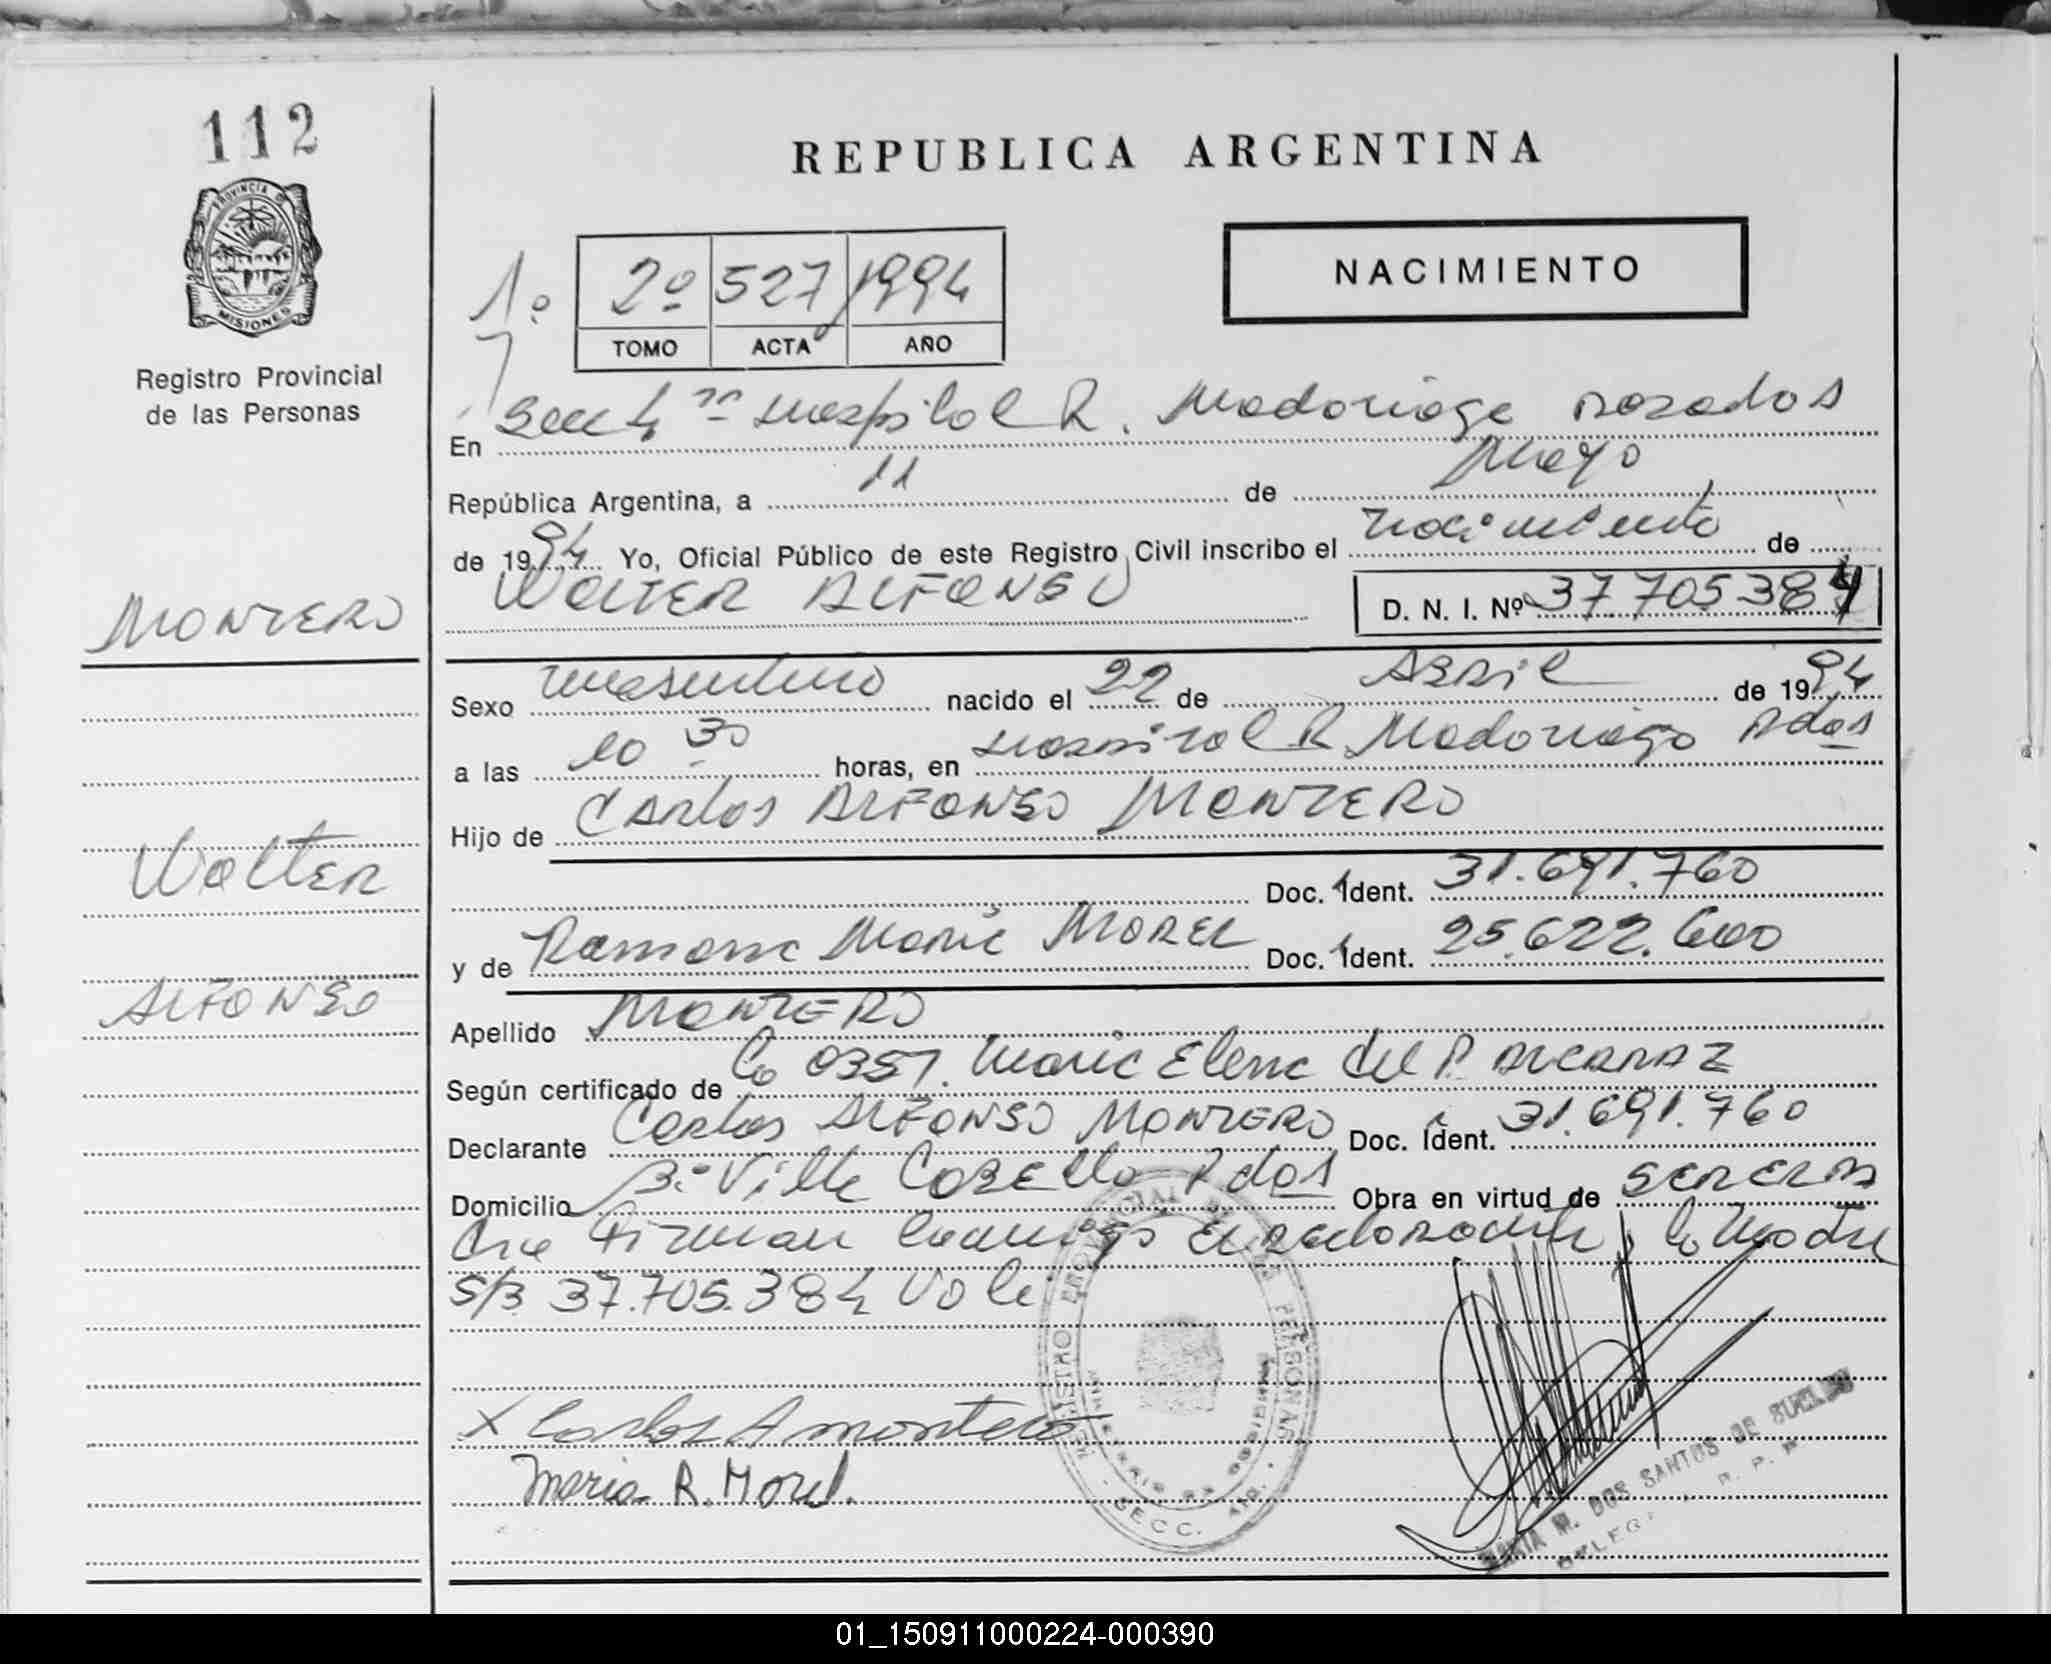 112
REPUBLICA ARGENTINA
PROVINCIA DE
MISIONES
Registro Provincial
de las Personas
NACIMIENTO
1º
2º 527 1994
TOMO ACTA AÑO
En Secc 4ª Hospital R. Madariaga Posadas
República Argentina, a 11 de Mayo
de 1994 Yo, Oficial Público de este Registro Civil inscribo el nacimiento de
WALTER ALFONSO
D. N. I. Nº 37705384
MONTERO
Sexo masculino nacido el 22 de ABRIL de 1994
a las 10 30 horas, en Hospital R Madariaga Pdas
Hijo de Carlos ALFONSO MONTERO
Doc. Ident. 31.691.760
Walter
y de Ramona Maria MOREL Doc. Ident. 25.622.600
ALFONSO
Apellido MONTERO
Según certificado de La 0351. Maria Elena del P. ALCARAZ
Declarante Carlos ALFONSO MONTERO Doc. Ident. 31.691.760
Domicilio Bº Villa Pdas Obra en virtud de
Firman conmigo el declarante y la Madre
S/B 37.705.384 Vale
X Carlos A montero
Maria R. Morel.
REGISTRO PROVINCIAL DE LAS PERSONAS
SECC.
MARIA M. DOS SANTOS DE
R. P. P.
01_150911000224-000390